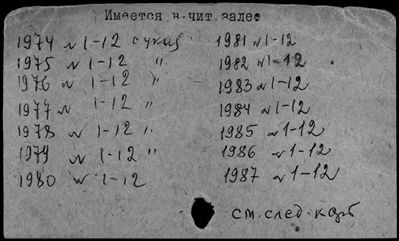 Имеется в.чит.зале
1974 N 1-12 с указ
1975 N 1-12 "
1976 N 1-12 "
1977 N 1-12 "
1978 N 1-12 "
1979 N 1-12 "
1980 N 1-12
1981 N 1-12
1982 N 1-12
1983 N 1-12
1984 N 1-12
1985 N 1-12
1986 N 1-12
1987 N 1-12
см. след. карт